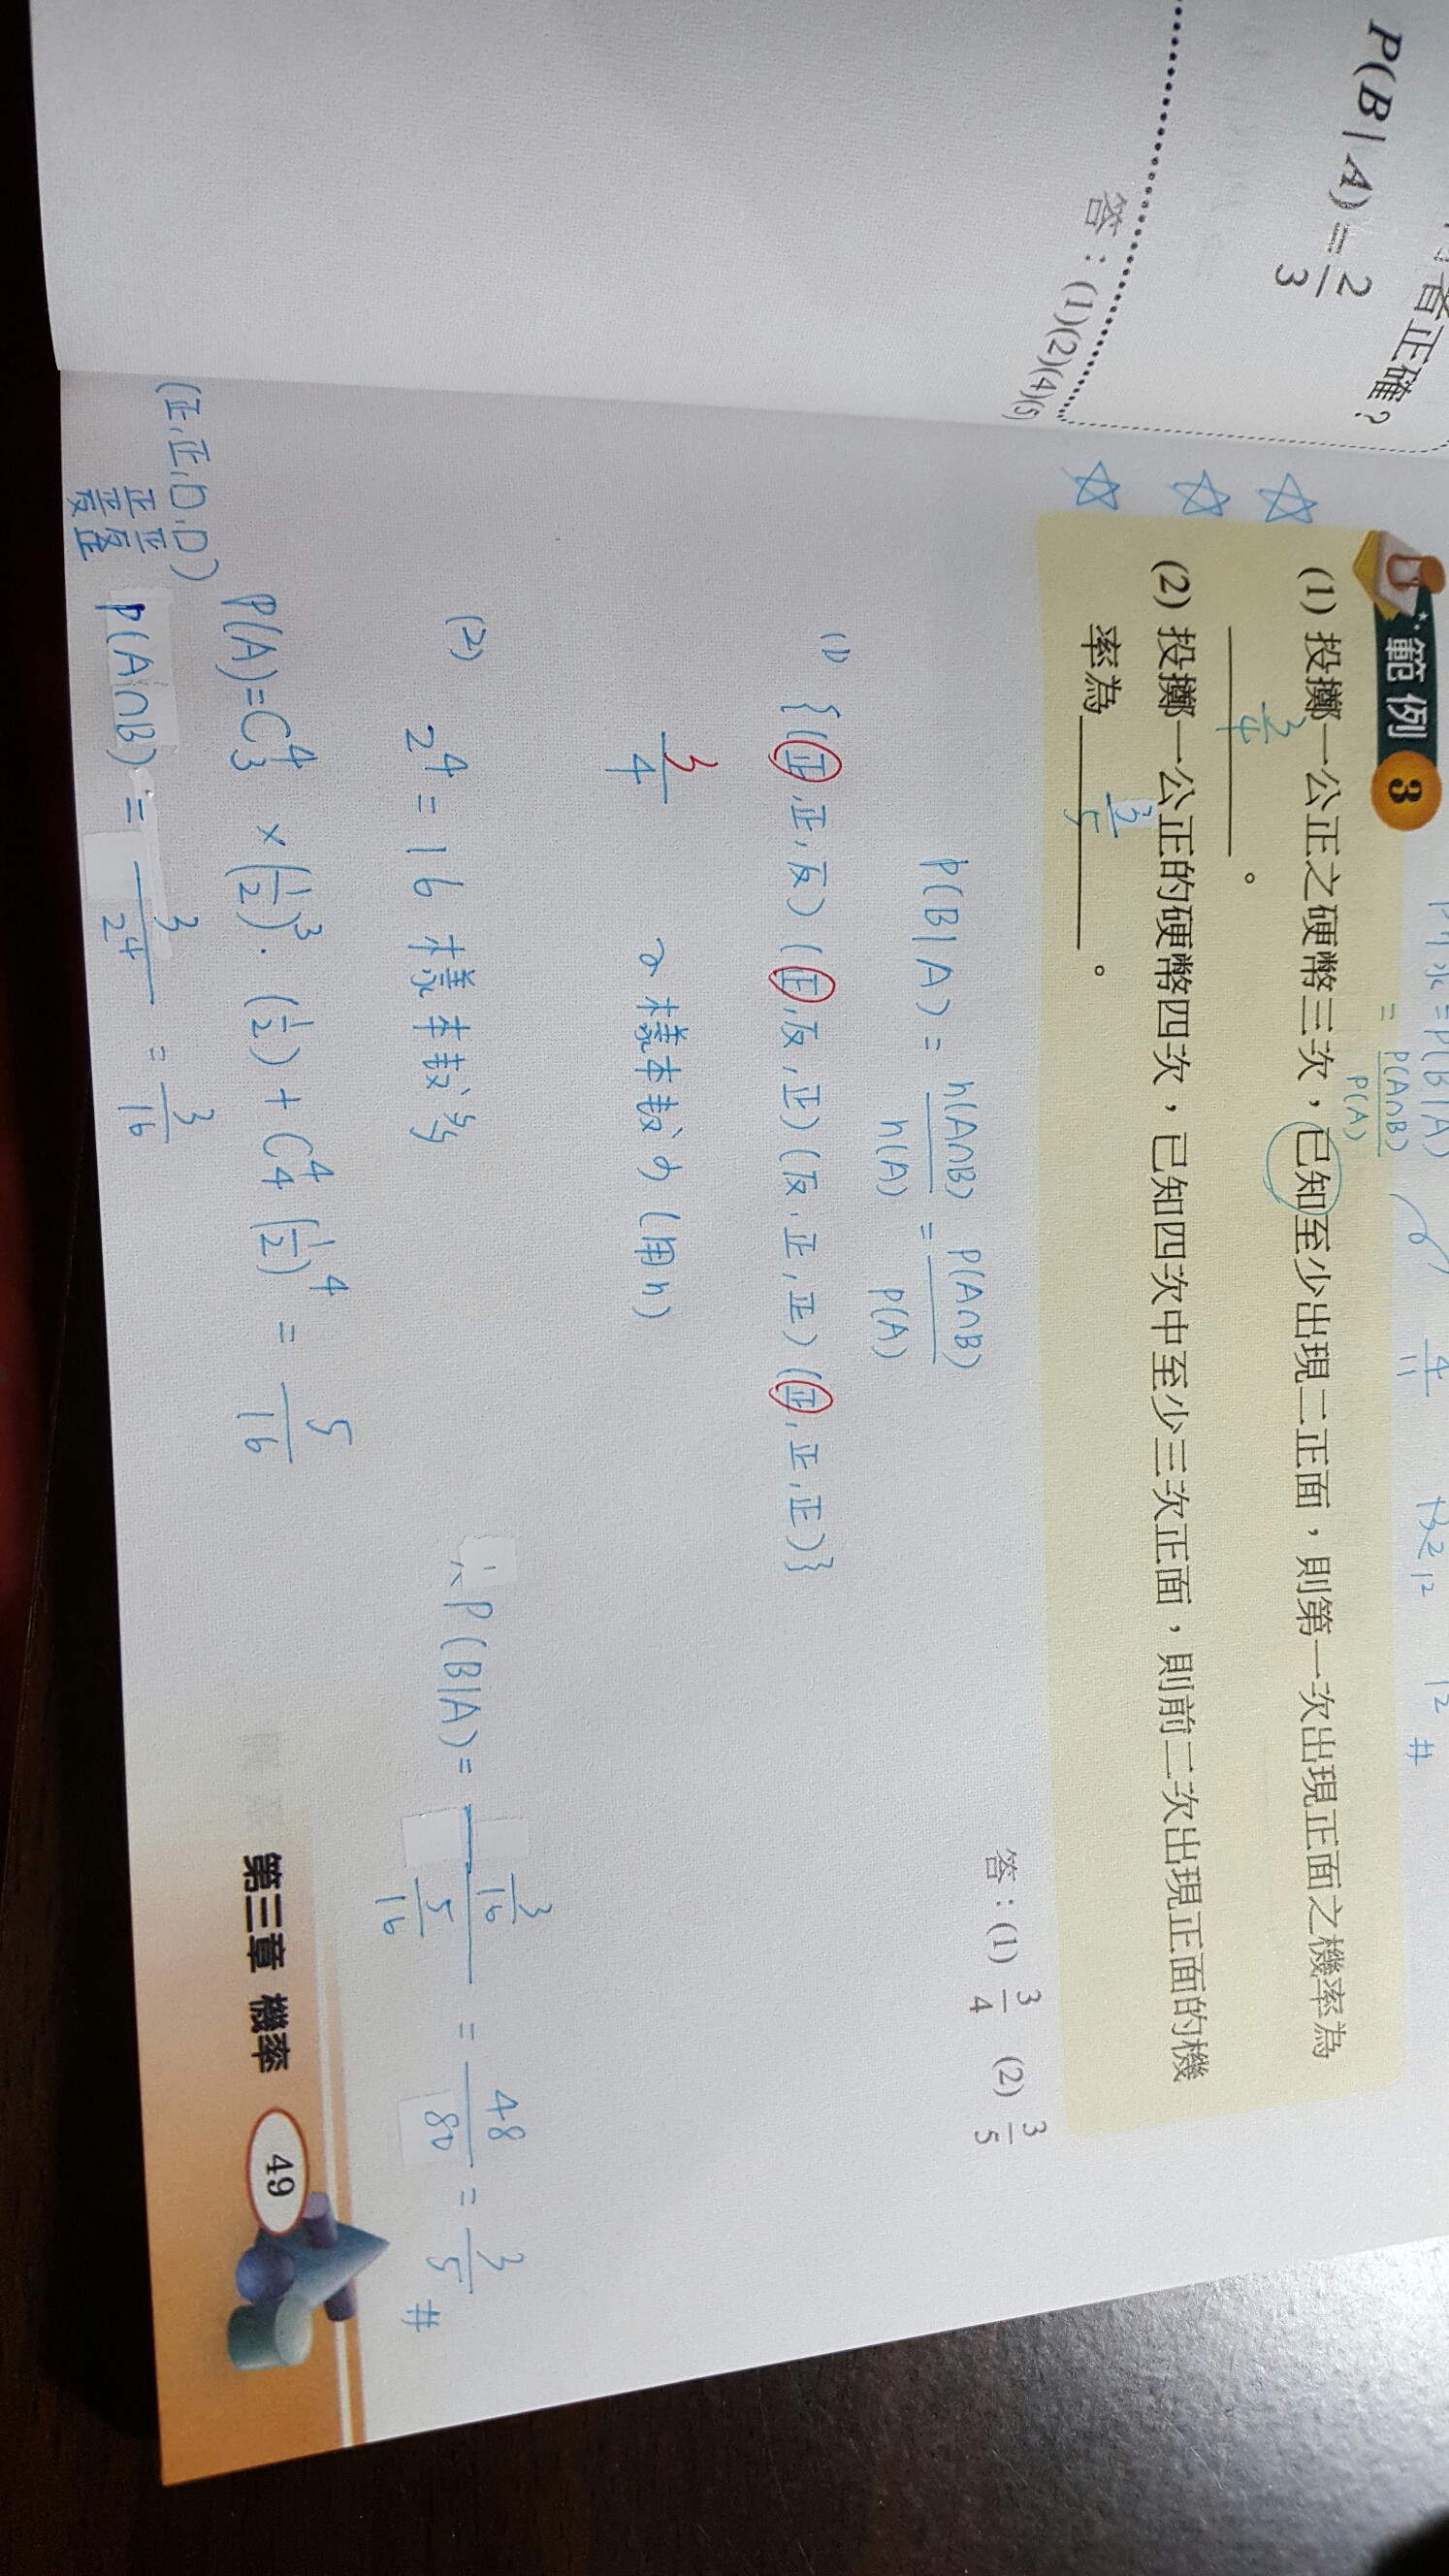 者正確？
P(B|A)=2/3
答：(1)(2)(4)(5)
=P(B|A)
=P(A∩B)/P(A)
4/11
12 #
範例 3
(1) 投擲一公正之硬幣三次，已知至少出現二正面，則第一次出現正面之機率為
3/4 。
(2) 投擲一公正的硬幣四次，已知四次中至少三次正面，則前二次出現正面的機
率為 3/5 。
答：(1) 3/4 (2) 3/5
P(B|A) = n(A∩B)/n(A) = P(A∩B)/P(A)
(1) {(正,正,反)(正,反,正)(反,正,正)(正,正,正)}
3/4
樣本數少(用n)
(2) 2^4=16 樣本數多
∴P(B|A)= (3/16)/(5/16) = 48/80 = 3/5 #
P(A)=C^4_3 ×(1/2)^3·(1/2)+C^4_4(1/2)^4 = 5/16
(正,正,□,□)
正 正
正 反
反 正
P(A∩B) = 3/2^4 = 3/16
第三章 機率 49